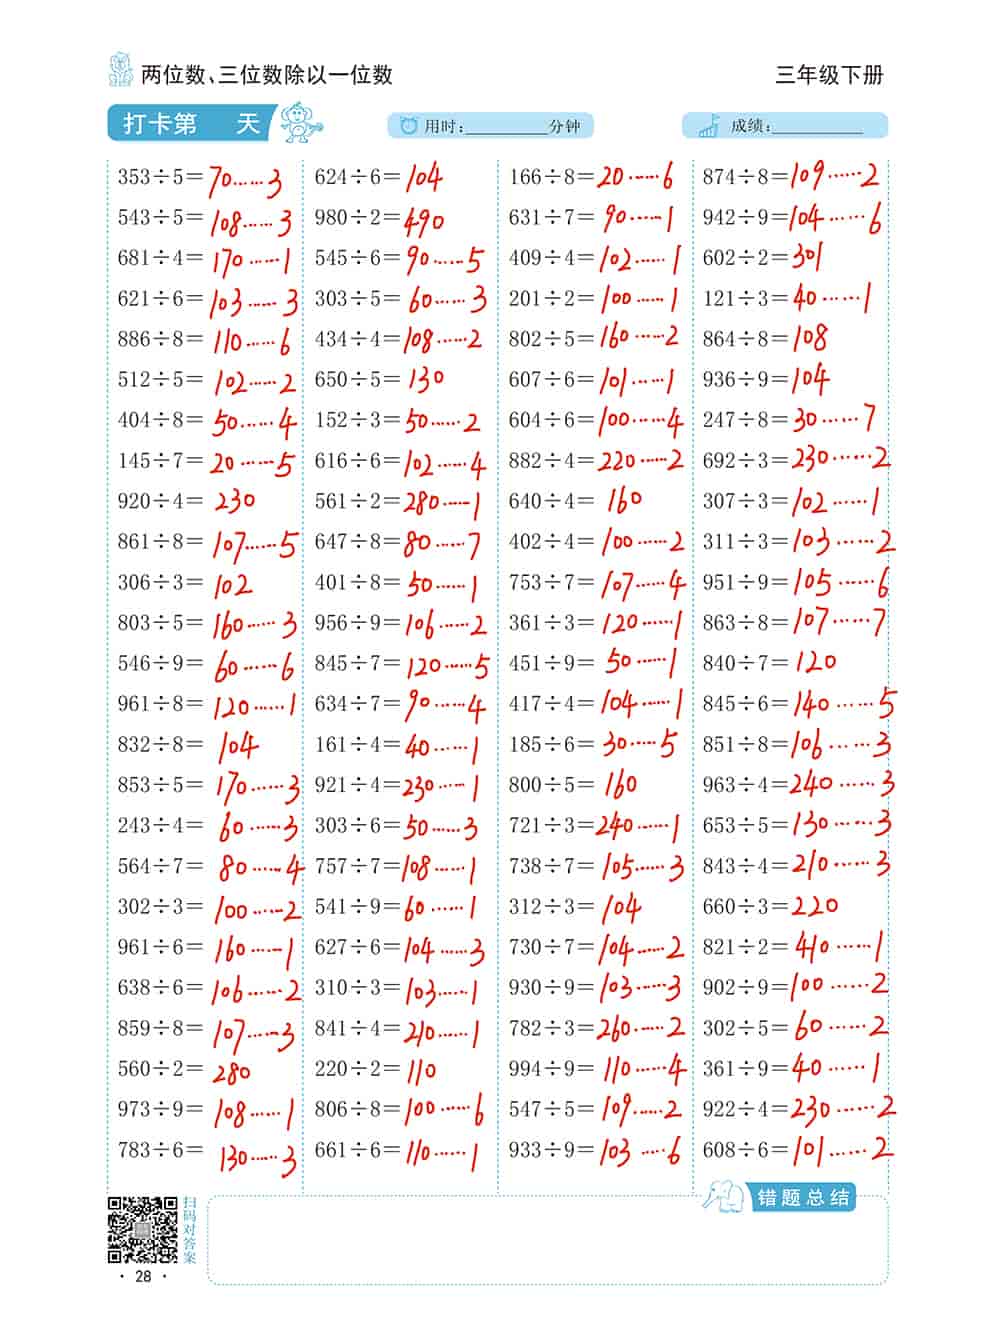 两位数、三位数除以一位数 三年级下册
打卡第 天 用时:________分钟 成绩:________
353÷5=70……3 624÷6=104 166÷8=20……6 874÷8=109……2
543÷5=108……3 980÷2=490 631÷7=90……1 942÷9=104……6
681÷4=170……1 545÷6=90……5 409÷4=102……1 602÷2=301
621÷6=103……3 303÷5=60……3 201÷2=100……1 121÷3=40……1
886÷8=110……6 434÷4=108……2 802÷5=160……2 864÷8=108
512÷5=102……2 650÷5=130 607÷6=101……1 936÷9=104
404÷8=50……4 152÷3=50……2 604÷6=100……4 247÷8=30……7
145÷7=20……5 616÷6=102……4 882÷4=220……2 692÷3=230……2
920÷4=230 561÷2=280……1 640÷4=160 307÷3=102……1
861÷8=107……5 647÷8=80……7 402÷4=100……2 311÷3=103……2
306÷3=102 401÷8=50……1 753÷7=107……4 951÷9=105……6
803÷5=160……3 956÷9=106……2 361÷3=120……1 863÷8=107……7
546÷9=60……6 845÷7=120……5 451÷9=50……1 840÷7=120
961÷8=120……1 634÷7=90……4 417÷4=104……1 845÷6=140……5
832÷8=104 161÷4=40……1 185÷6=30……5 851÷8=106……3
853÷5=170……3 921÷4=230……1 800÷5=160 963÷4=240……3
243÷4=60……3 303÷6=50……3 721÷3=240……1 653÷5=130……3
564÷7=80……4 757÷7=108……1 738÷7=105……3 843÷4=210……3
302÷3=100……2 541÷9=60……1 312÷3=104 660÷3=220
961÷6=160……1 627÷6=104……3 730÷7=104……2 821÷2=410……1
638÷6=106……2 310÷3=103……1 930÷9=103……3 902÷9=100……2
859÷8=107……3 841÷4=210……1 782÷3=260……2 302÷5=60……2
560÷2=280 220÷2=110 994÷9=110……4 361÷9=40……1
973÷9=108……1 806÷8=100……6 547÷5=109……2 922÷4=230……2
783÷6=130……3 661÷6=110……1 933÷9=103……6 608÷6=101……2
错题总结
扫码对答案
·28·